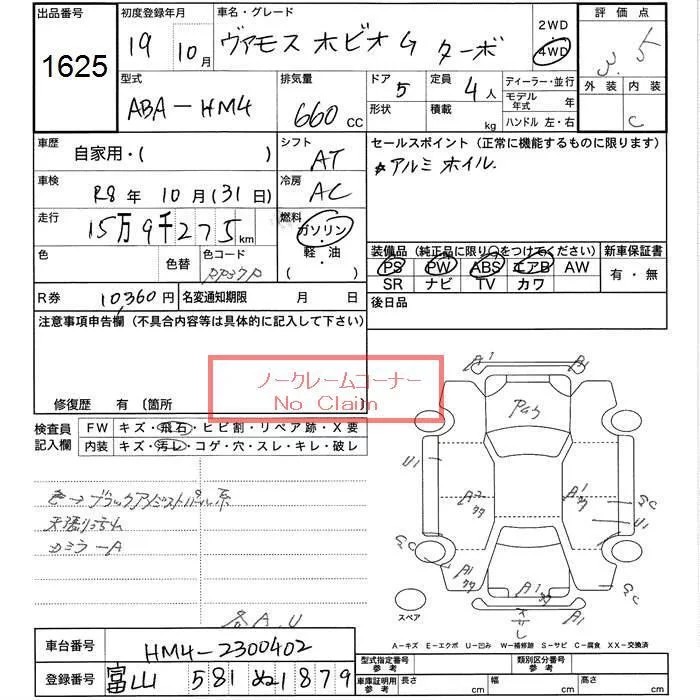 出品番号
1625
初度登録年月
19 10月
車名・グレード
ヴァモス ホビオ G ターボ
2WD
4WD
評価点
3.5
外装 内装
C
型式
ABA-HM4
排気量
660 CC
ドア 5
形状
定員 4人
積載 kg
ディーラー・並行
モデル年式 年
ハンドル 左・右
車歴
自家用・( )
シフト
AT
セールスポイント (正常に機能するものに限ります)
アルミホイル.
車検
R8年 10月(31日)
冷房
AC
走行
15万9千275km
燃料
ガソリン・
軽・油
・( )
色
色替
色コード
PP37P
装備品 (純正品に限り○をつけてください)
PS PW ABS エアB AW
SR ナビ TV カワ
新車保証書
有・無
R券 10,360円
名変通知期限 月 日
後日品
注意事項申告欄 (不具合内容等は具体的に記入して下さい)
ノークレームコーナー
No Claim
修復歴 有 〔箇所
検査員
記入欄
FW キズ・飛石・ヒビ割・リペア跡・X要
内装 キズ・汚レ・コゲ・穴・スレ・キレ・破レ
色→ブラックアメジストパール系
カミラーA
各A.U
A1
A1
U1
U1
A1
A1
A1
スペア
A-キズ E-エクボ U-凹み W-補修跡 S-サビ C-腐食 XX-交換済
車台番号
HM4-2300402
登録番号
富山 581 ぬ 1879
型式指定番号
参考
類別区分番号
参考
車庫証明用
参考
長さ cm
幅 cm
高さ cm